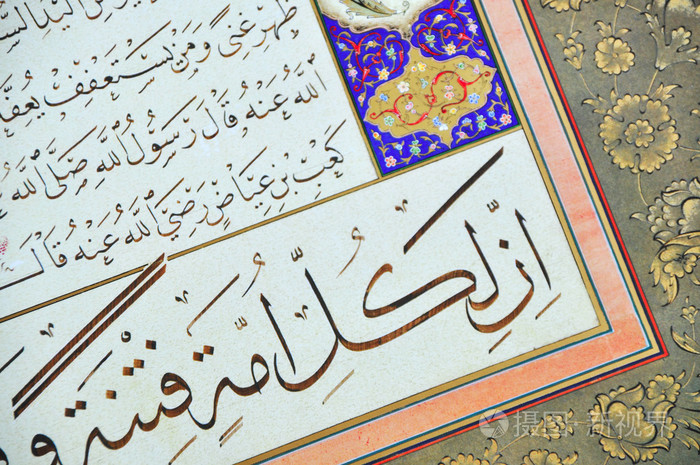 مِنَ الْيَدِ
ظَهْرِ غِنًى وَمَنْ يَسْتَعْفِفْ يُعِفَّهُ
اللهُ عَنْهُ قَالَ رَسُولُ اللهِ صَلَّى اللهُ
كَعْبِ بْنِ عِيَاضٍ رَضِيَ اللهُ عَنْهُ قَالَ
إِنَّ لِكُلِّ أُمَّةٍ فِتْنَةً وَ
摄图·新视界